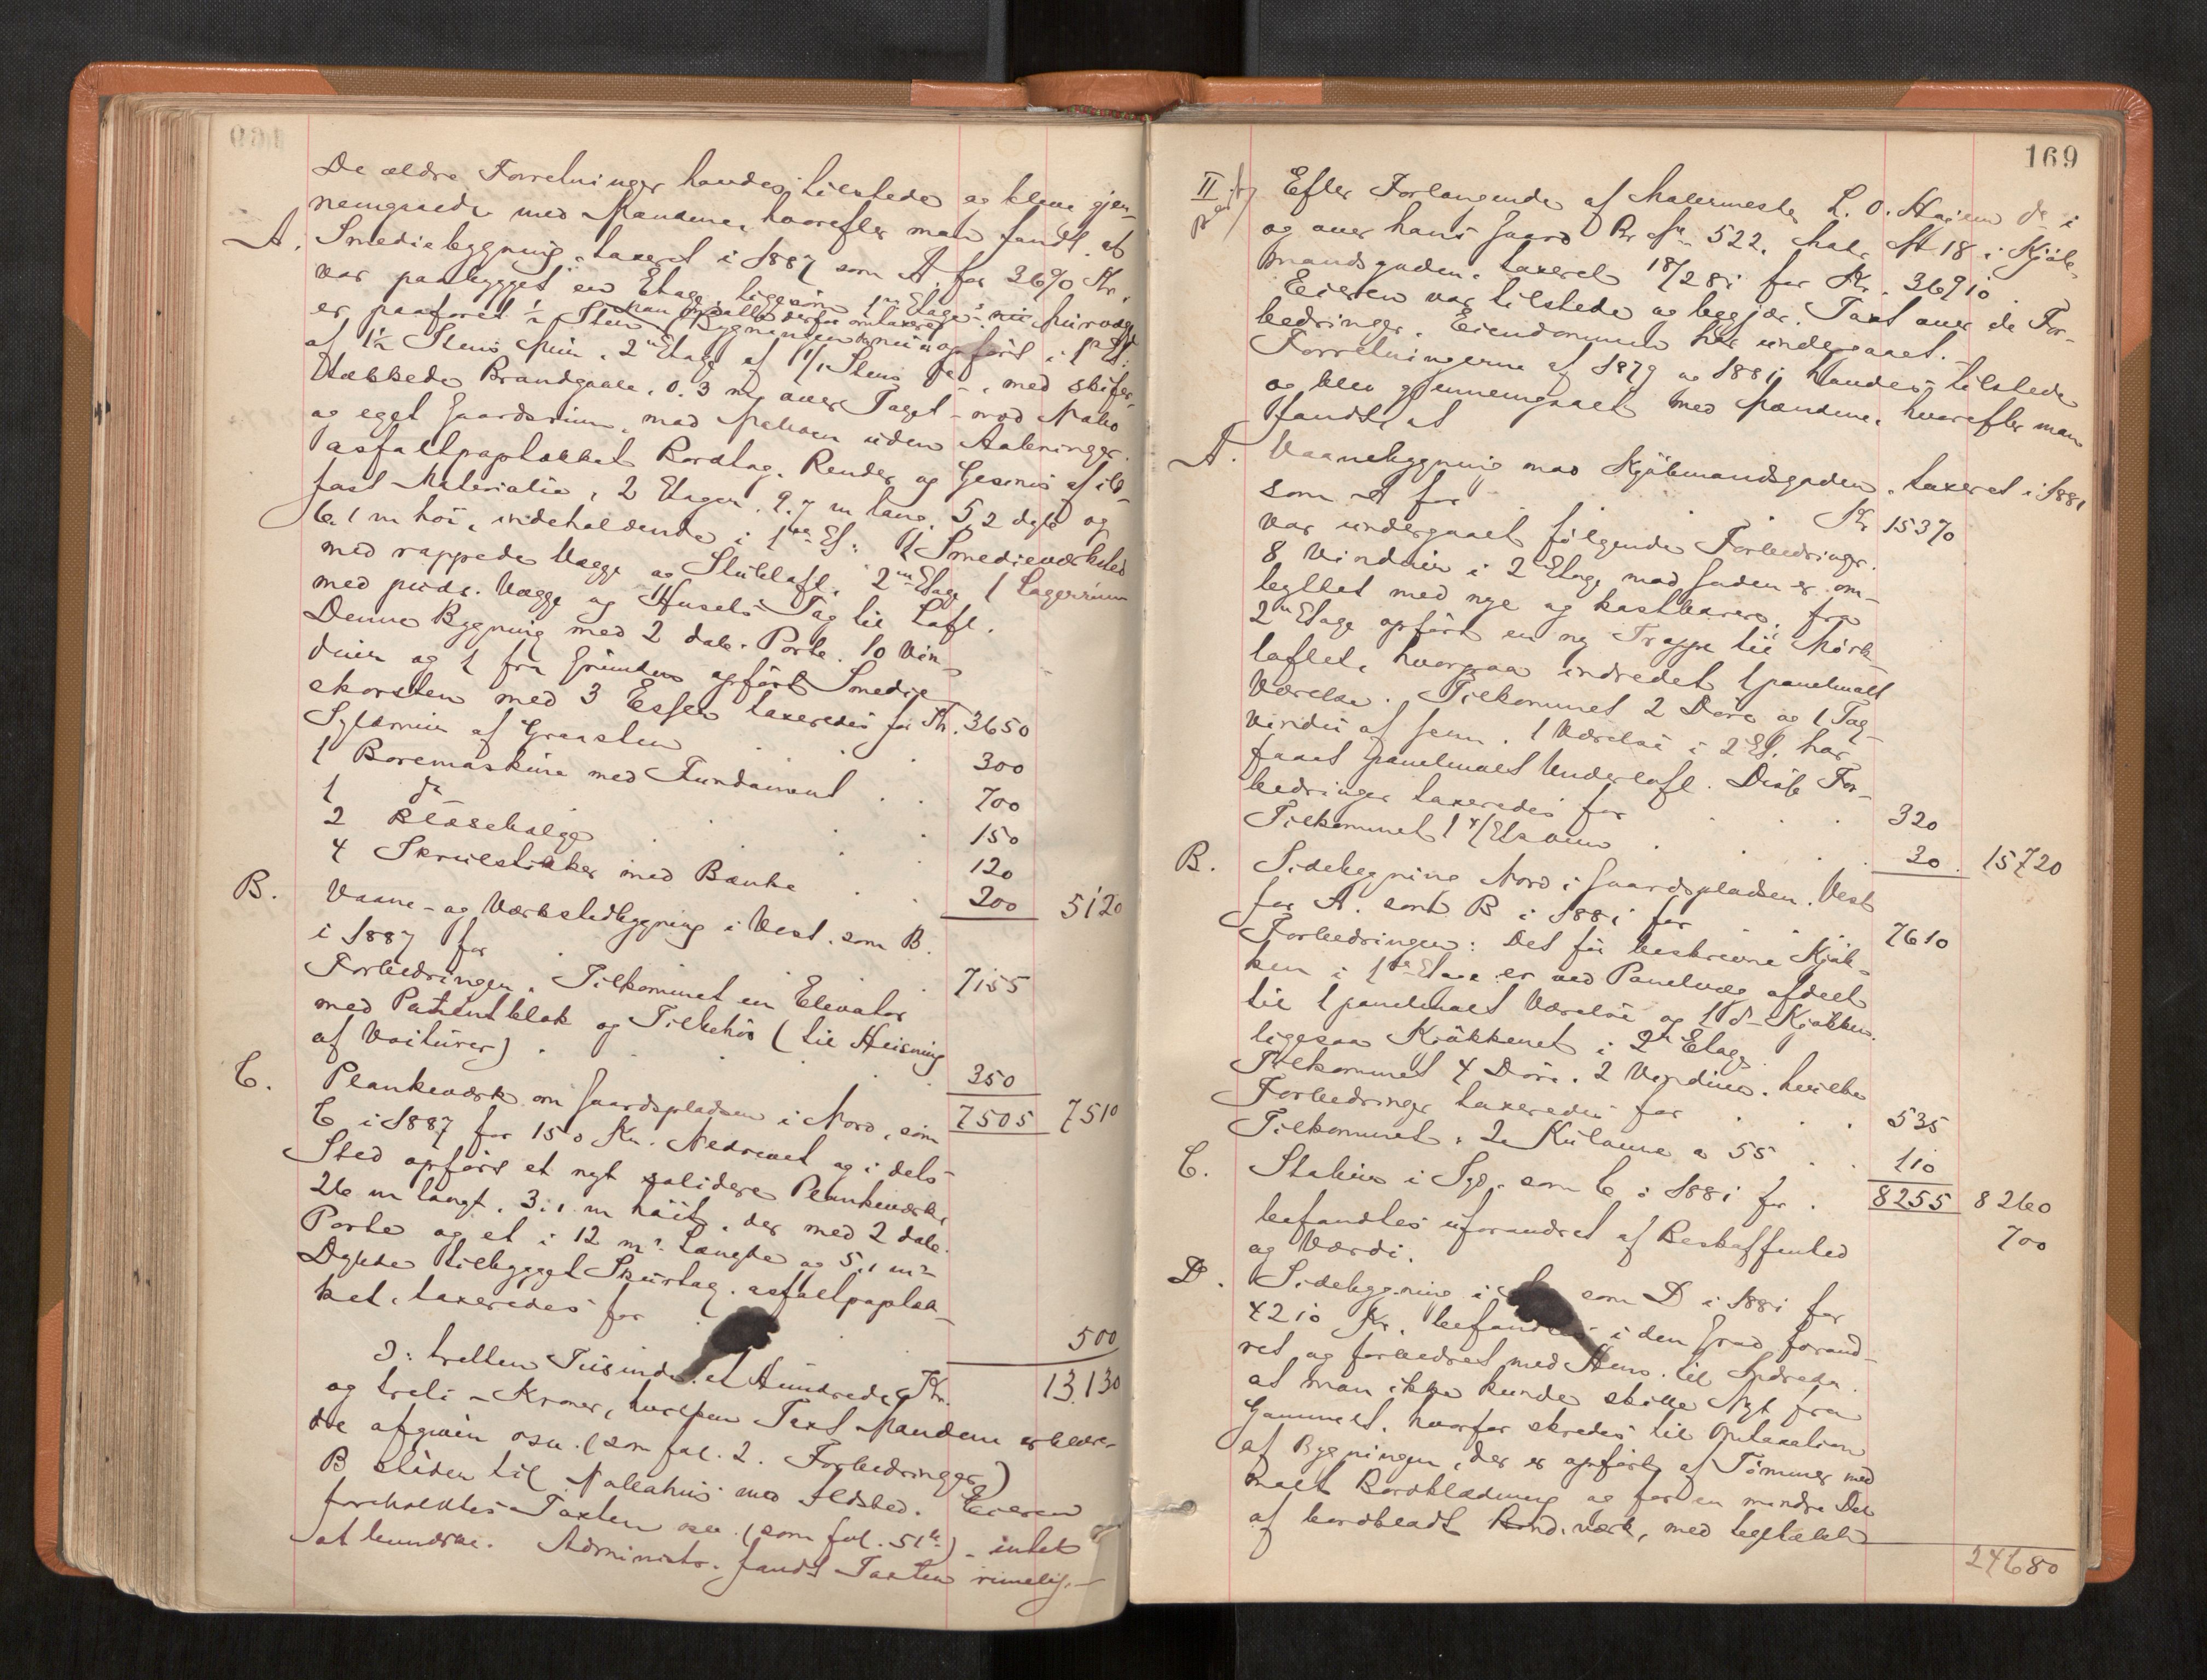 De ældre Forretninger havdes tilstede og bleve gjen-
nemgaaede med Mændene, hvorefter man fandt, at
A. Smediebygning, taxeret i 1887 som A. for 3690 Kr.
var paabygget en Etage, ligesom 1ste Etages Mürvægge
er paaforet 1/2 Sten
Man omtaxered derfor Bygningen. nü opført i 1ste Et.
af 1 1/2 Stens Mür, 2den Etage af 1/1 Stens do, med skifer-
tækkede Brandgavle, 0.3 m over Taget mod Nabo
og eget Gaardsrüm, mod uden Aabninger.
asfaltpaptækket Bordtag. Render og Gesims af ild-
fast Materiale, 2 Etager, 9.7 m lang, 5,2 dyb og
6.1 m høi, indeholdende i 1ste Et: 1 Smedieværksted
med rappede Vægge og Stubloft, i 2den Etage 1 Lagerrüm
med püds. Vægge og Husets Tag til Loft.
Denne Bygning med 2 dob. Porte, 10 Vin-
düer og 1 fra Grunden opført Smedie-
skorsten med 3 Esser taxeredes for Kr. 3650
Syldmür af Graasten . . 300
1 Boremaskine med Fundament . . 700
1 do . . 150
2 Blæsebælge . . 120
4 Skruestikker med Bænke . . 200 5120
B. Vaane- og Værkstedbygning i Vest, som B.
i 1887 for . . 7155
Forbedringer. Tilkommet en Elevator
med Patentblok og Tilbehör (til Heisning
af Voitürer) . . 350
7505 7510
C. Plankeværk om Gaardspladsen i Nord, som
C i 1887 for 150 Kr. Nedrevet og i dets
Sted opført et nyt solidere Plankeværk,
26 m langt, 3.1 m høit, der med 2 dob.
Porte og et i 12 m Længde og 5.1 m
Dybde tilbygget Skürtag, asfaltpaptæk-
ket, taxeredes for . . 500
Kr. 13.130
ɔ: tretten Tüsinde et Hündrede
og treti Kroner, hvilken Taxt Mændene erklære-
de afgiven osv. (som fol. 2. Forbedringer)
B støder til Naboehüs med Ildsted. Eieren
foreholdtes Taxten osv. (som fol. 51) intet
at bemærke. Administr. fandt Taxten rimelig.
169
II Efter Forlangende af Malermester L. O. Hagem do i
og over hans Gaard Br. No 522, Matr. No 18 i Kjøb-
mandsgaden, taxeret 18/2 81 for Kr. 36910.
Eieren var tilstede og begjær. Taxt over de For-
bedringer, Eiendommen har undergaaet.
Forretningerne af 1879 og 1881 havdes tilstede
og blev gjennemgaaet med Mændene, hvorefter man
fandt, at
A. Vaanebygning mod Kjøbmandsgaden, taxeret i 1881
som A for . . Kr 15370
var undergaaet følgende Forbedringer.
8 Vindüer i 2 Etage mod Gaden er om-
byttet med nye og kostbarere, fra
2den Etage opført en ny Trappe til Mørk-
loftet, hvorpaa indredet 1 panelmalt
Værelse. Tilkommet 2 Døre og 1 Tag-
vindü af Jern. 1 Værelse i 2 Et. har
faaet panelmalt Underloft. Disse For-
bedringer taxeredes for . . 320
Tilkommet 1 Et. ovn . . 30 15720
B. Sidebygning Nord i Gaardspladsen, Vest
for A, som B i 1881 for . . 7610
Forbedringer: Det før beskrevne Kjøk-
ken i 1ste Etage er ved Panelvæg afdeelt
til 1 panelmalt Værelse og 1 do Kjøkken.
ligesaa Kjøkkenet i 2den Etage
Tilkommet 4 Döre, 2 Vindüer, hvilke
Forbedringer taxeredes for . . 535
Tilkommet: 2 Kulovne a 55 . . 110
8255 8260
C. Stabür i Syd, som C i 1881 for . . 700
befandtes üforandret af Beskaffenhed
og Værdi.
D. Sidebygning i som D i 1881 for
4210 Kr. befandtes i den Grad forand-
ret og forbedret med Hens. til Indreda.
at man ikke kunde skille Nyt fra
Gammelt, hvorfor skredes til Omtaxation
af Bygningen, der er opført af Tømmer med
malt Bordklædning og for en mindre Del
af bordklædt Bind.værk, med tegltækket
24680